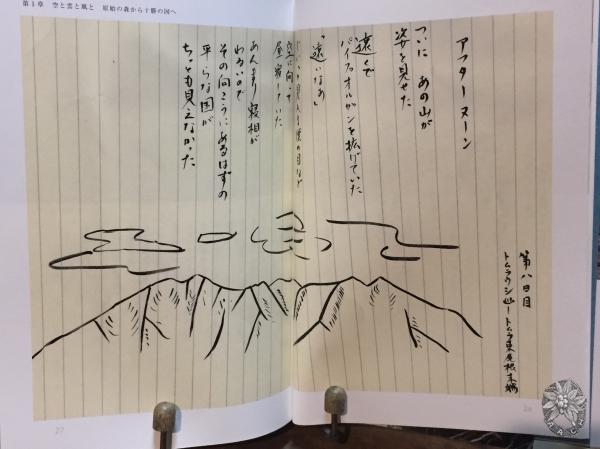 第1章　空と雲と風と　原始の森から十勝の国へ
第八日目
トムラウシ山―トムラ東尾根末端
アフターヌーン
ついに　あの山が
姿を見せた
遠くで
パイプオルガンを拡げていた
「遠いなあ」
空に向って
昼寝していた
あんまり寝相が
わるいので
その向こうにあるはずの
平らな国が
ちっとも見えなかった
27
26